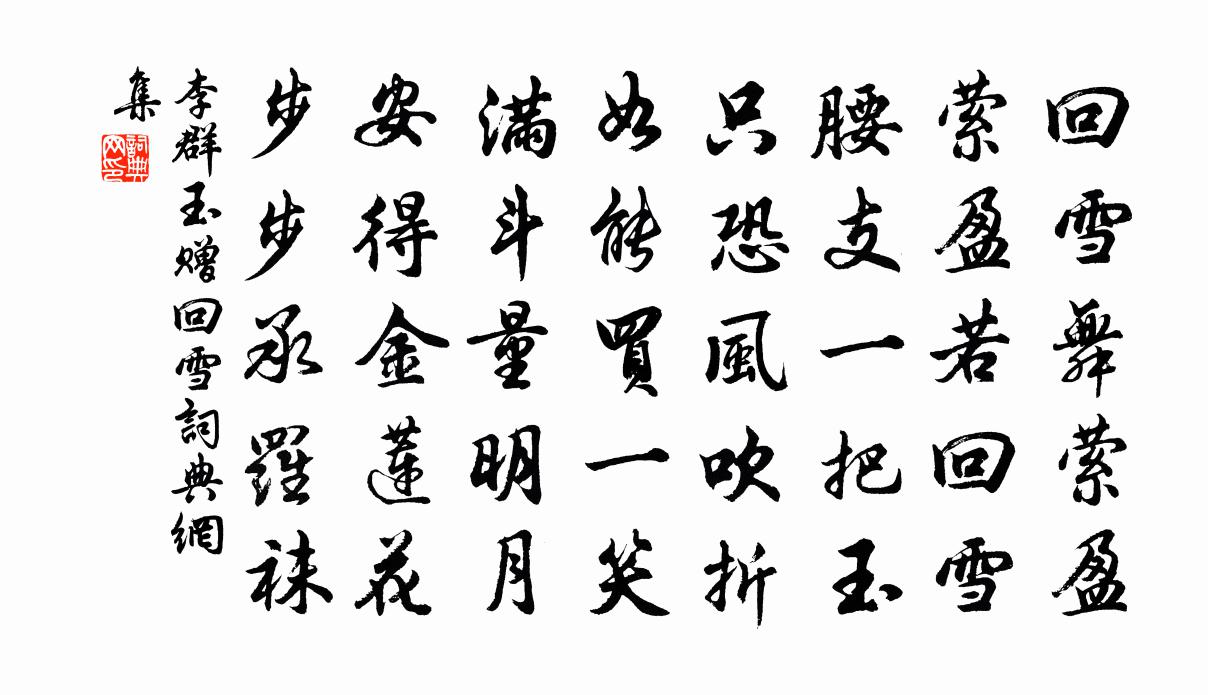 回雪舞萦盈
萦盈若回雪
腰支一把玉
只恐風吹折
如能買一笑
滿斗量明月
安得金蓮花
步步承羅袜
李群玉赠回雪詞典網
集
詞典網印